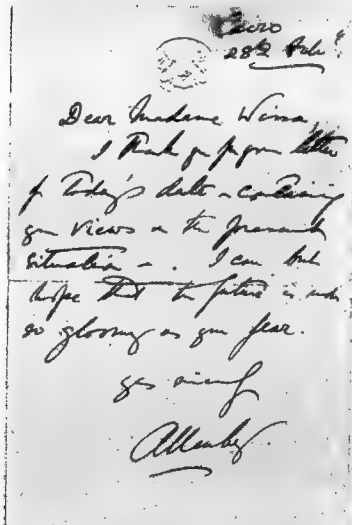 Cairo
28th Feb
Dear Madame Wissa,
I thank you for your letter
of today's date - containing
your views on the present
situation - . I can but
hope that the future is not
so gloomy as you fear.
yrs sincerely
Allenby.